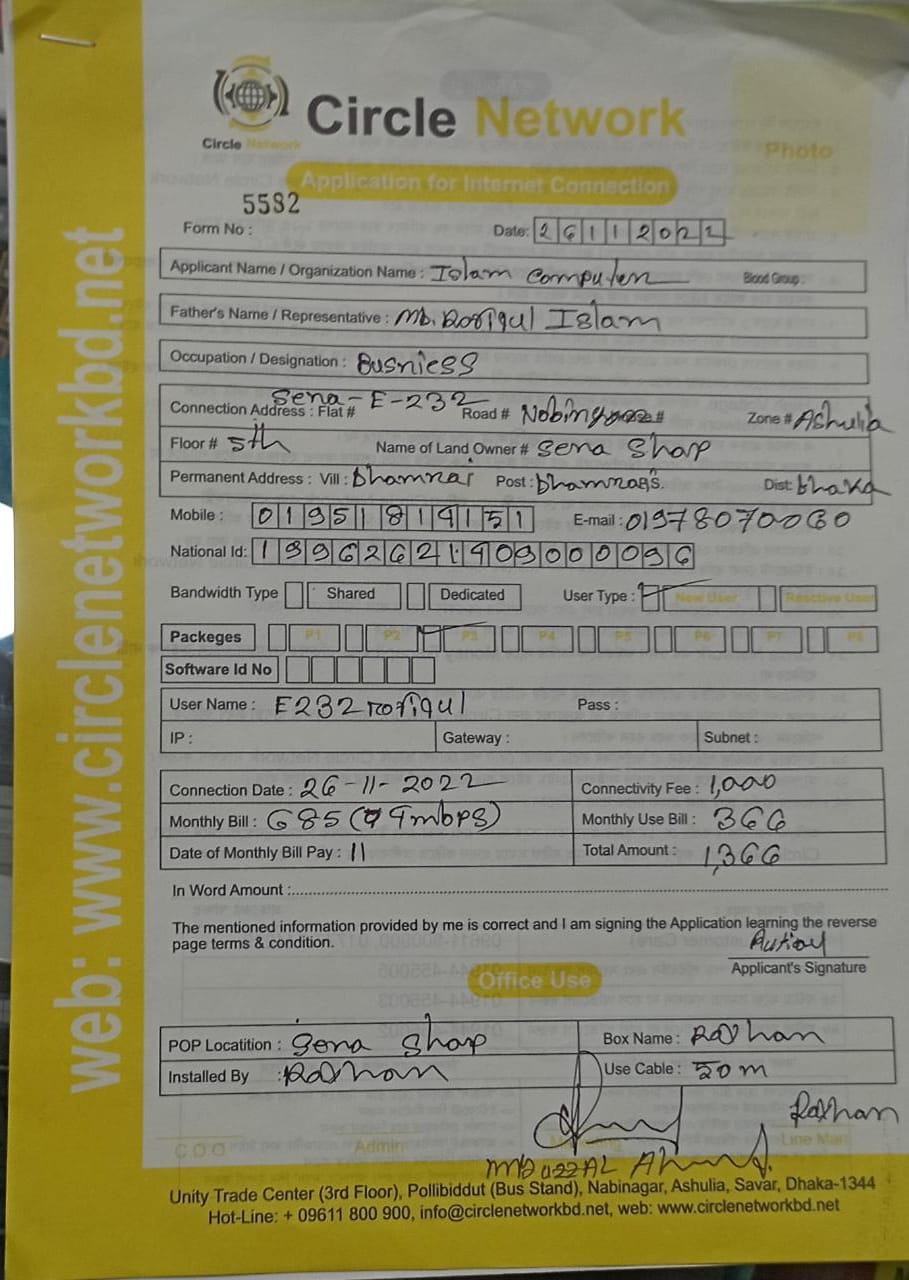 Circle Network
Circle Network
Photo
Application for Internet Connection
5582
Form No :
Date: 26112022
Applicant Name / Organization Name : Islam Computer Blood Group :
Father's Name / Representative : Md. Rofiqul Islam
Occupation / Designation : Busniess
Connection Address : Flat # Sena-E-232 Road # Zone # Ashulia
Floor # 5th Name of Land Owner # Sena Shop
Permanent Address : Vill : Dhamrai Post : Dist: Dhaka
Mobile : 01951819151 E-mail : 01978070060
National Id: 19962621909000096
Bandwidth Type Shared Dedicated User Type : New User Reactive User
Packeges P1 P2 P3 P4 P5 P6 P7 P8
Software Id No
User Name : E232rofiqul Pass :
IP : Gateway : Subnet :
Connection Date : 26-11-2022 Connectivity Fee : 1,000
Monthly Bill : 685 (9mbps) Monthly Use Bill : 366
Date of Monthly Bill Pay : 11 Total Amount : 1,366
In Word Amount :
The mentioned information provided by me is correct and I am signing the Application learning the reverse
page terms & condition.
Applicant's Signature
Office Use
POP Locatition : Sena Shop Box Name : Rayhan
Installed By : Rayhan Use Cable : 50m
Rayhan
COO Admin Line Man
Unity Trade Center (3rd Floor), Pollibiddut (Bus Stand), Nabinagar, Ashulia, Savar, Dhaka-1344
Hot-Line: + 09611 800 900, info@circlenetworkbd.net, web: www.circlenetworkbd.net
web: www.circlenetworkbd.net